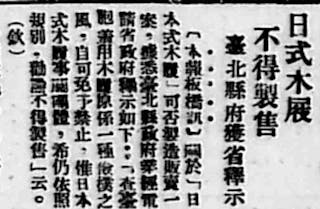 日式木屐
不得製售
臺北縣府獲省釋示
〔本報板橋訊〕關於「日
本式木屐」可否製造販賣一
案，茲悉臺北縣政府業經電
請省政府釋示如下：「查臺
胞善用木屐原係一種儉樸之
風，自可免予禁止，惟日本
式木屐事屬團體，希仍依照
規別，勸諭不得製售」云。
（欽）